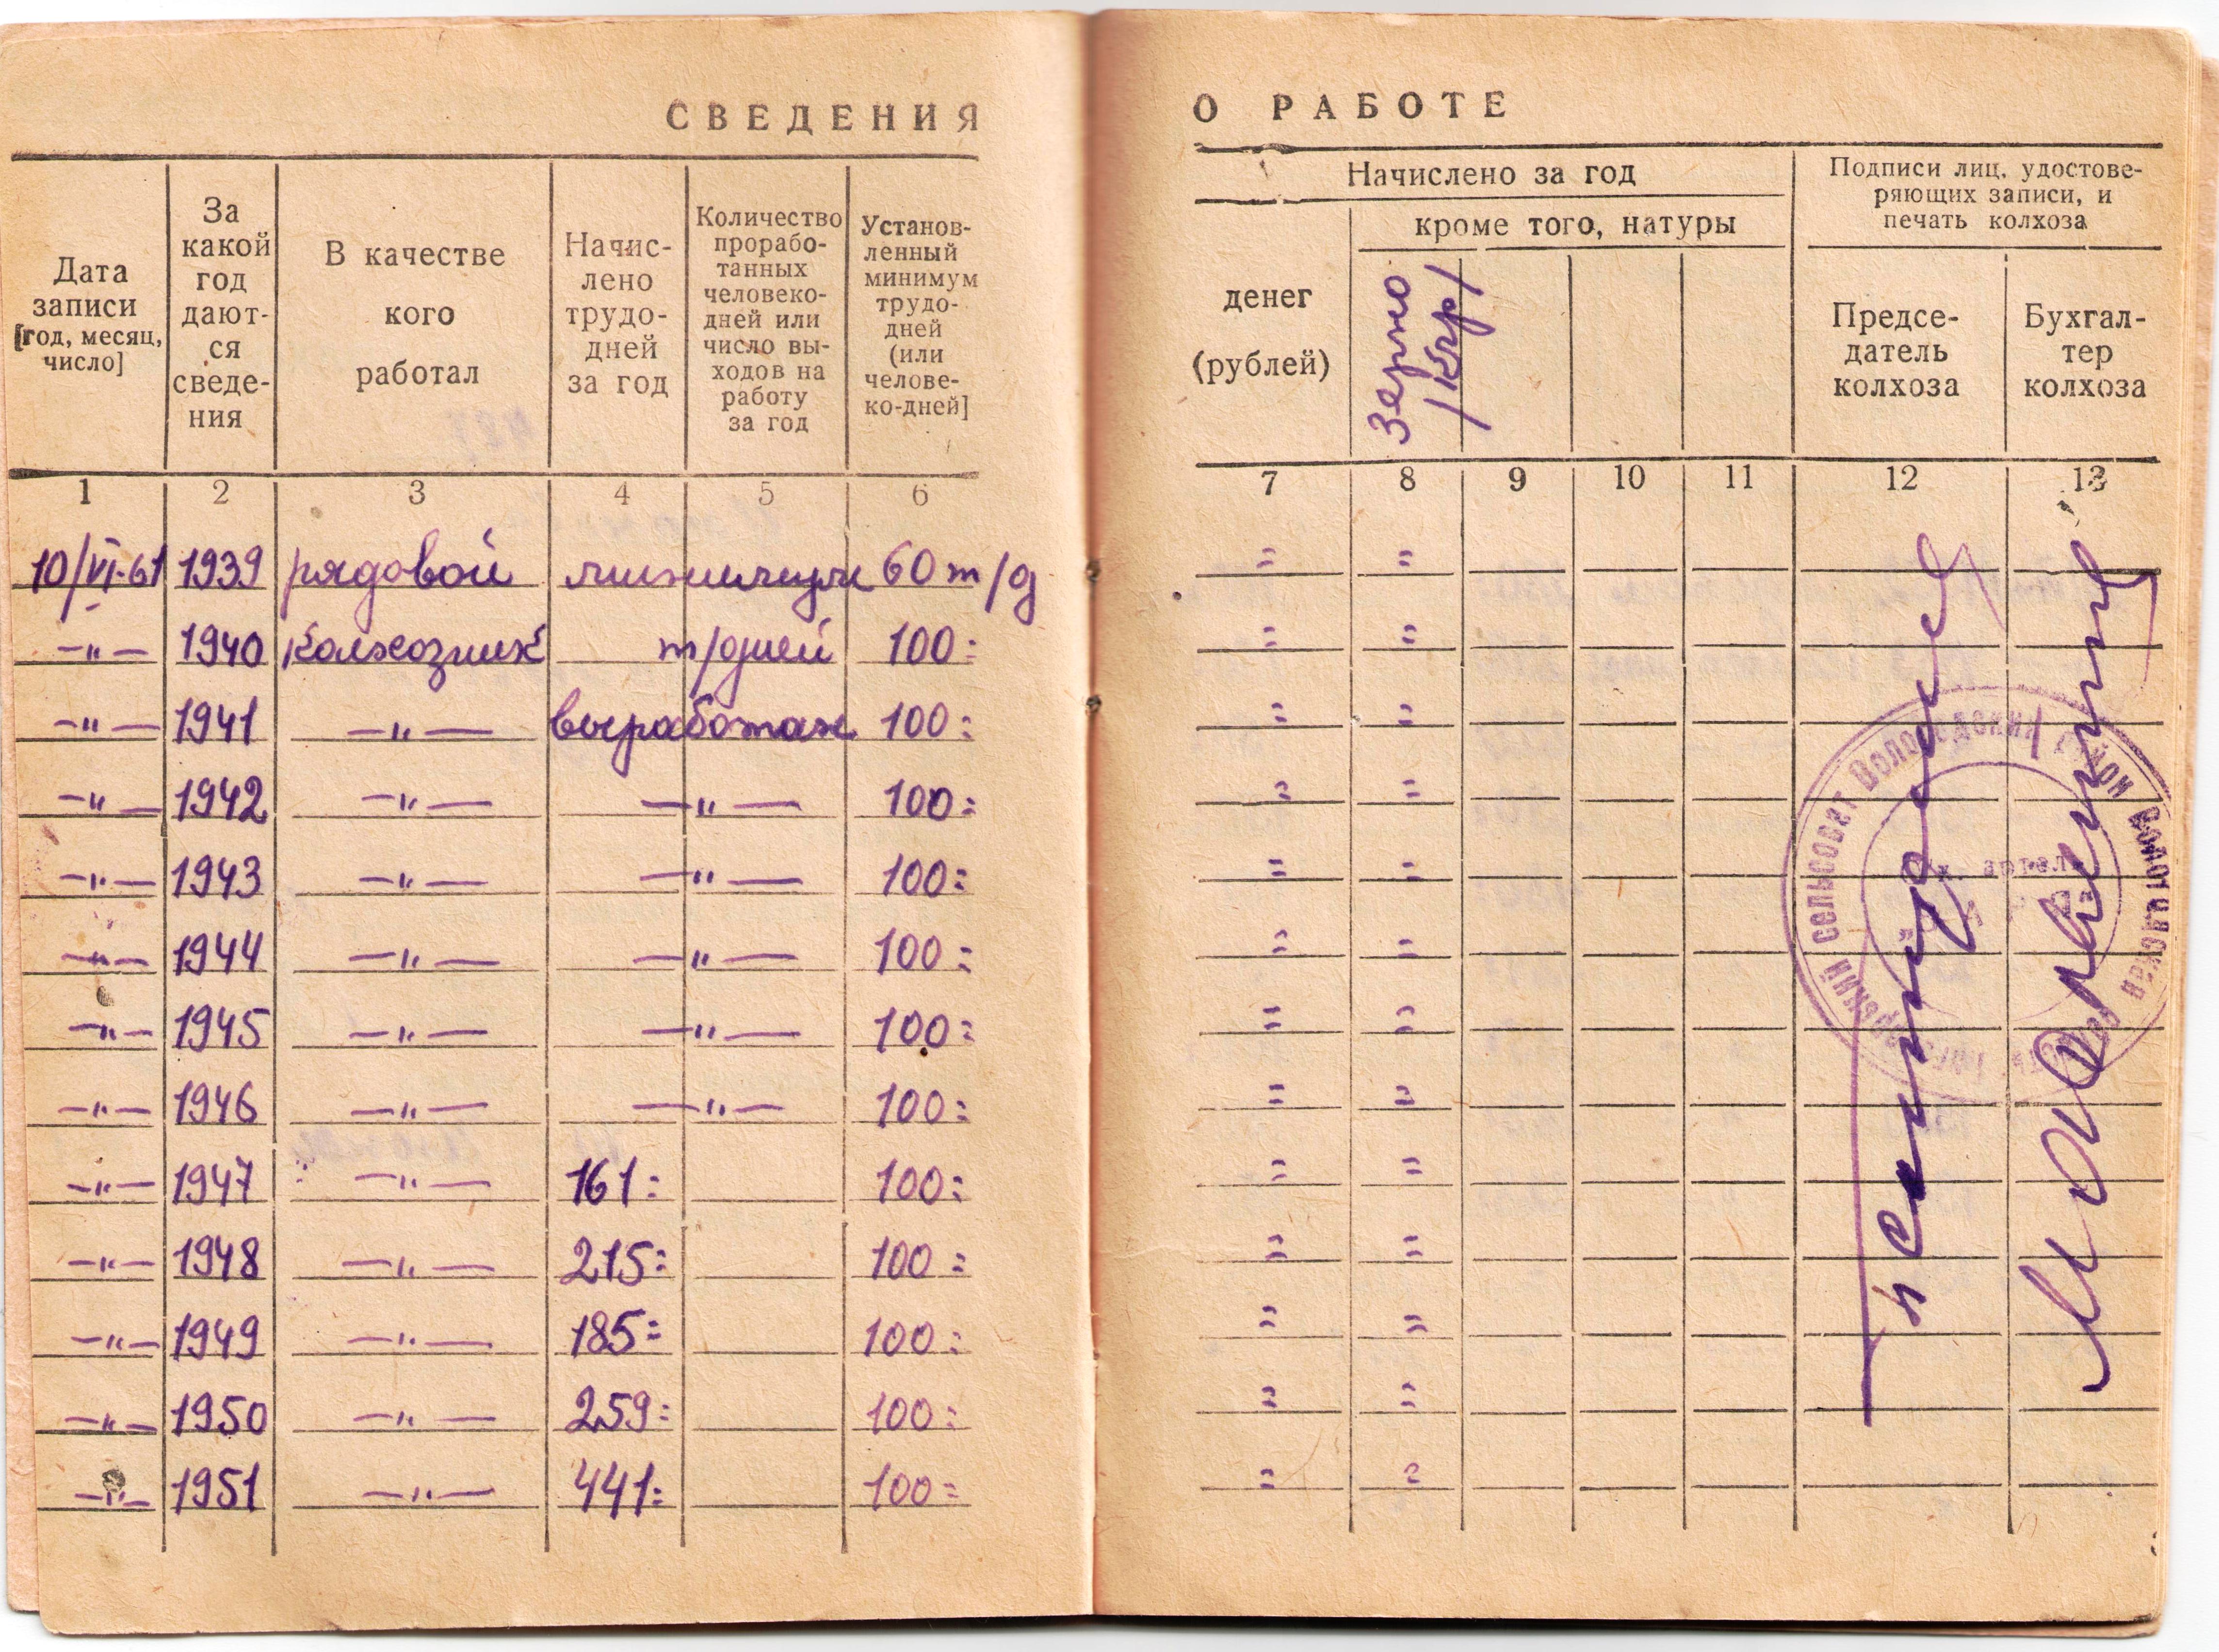 СВЕДЕНИЯ О РАБОТЕ
Дата
записи
[год, месяц,
число]
За
какой
год
дают-
ся
сведе-
ния
В качестве
кого
работал
Начис-
лено
трудо-
дней
за год
Количество
прорабо-
танных
человеко-
дней или
число вы-
ходов на
работу
за год
Установ-
ленный
минимум
трудо-
дней
(или
челове-
ко-дней]
Начислено за год
денег
(рублей)
кроме того, натуры
Зерно
/Кгр/
Подписи лиц, удостове-
ряющих записи, и
печать колхоза
Предсе-
датель
колхоза
Бухгал-
тер
колхоза
1 2 3 4 5 6 7 8 9 10 11 12 13
10/VI-61 1939 рядовой минимум 60 т/д = =
—"— 1940 колхозник т/дней 100= = =
—"— 1941 —"— выработан 100= = =
—"— 1942 —"— —"— 100= = =
—"— 1943 —"— —"— 100= = =
—"— 1944 —"— —"— 100= = =
—"— 1945 —"— —"— 100= = =
—"— 1946 —"— —"— 100= = =
—"— 1947 —"— 161= 100= = =
—"— 1948 —"— 215= 100= = =
—"— 1949 —"— 185= 100= = =
—"— 1950 —"— 259= 100= = =
—"— 1951 —"— 441= 100= = =
сельсовет
артель